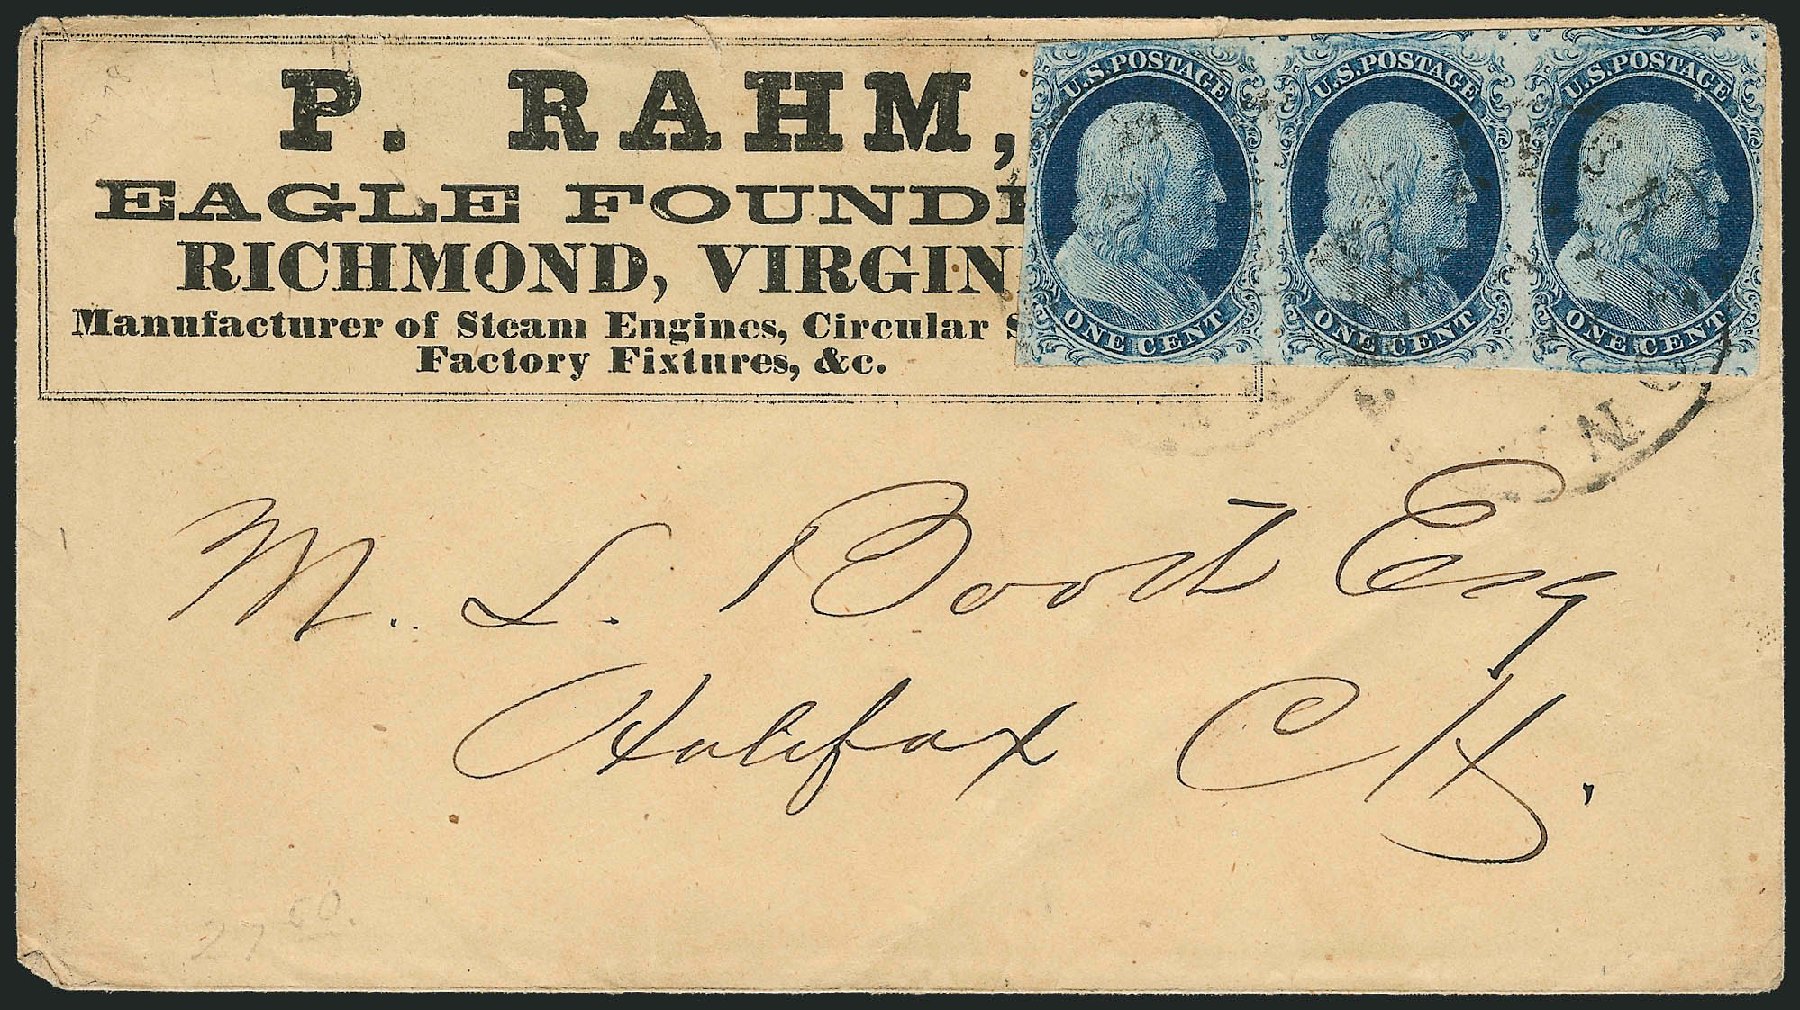 P. RAHM,
EAGLE FOUND
RICHMOND, VIRGIN
Manufacturer of Steam Engines, Circular S
Factory Fixtures, &c.
U.S. POSTAGE
ONE CENT
U.S. POSTAGE
ONE CENT
U.S. POSTAGE
ONE CENT
M. L. Booth Esq
Halifax CH.
27 50.